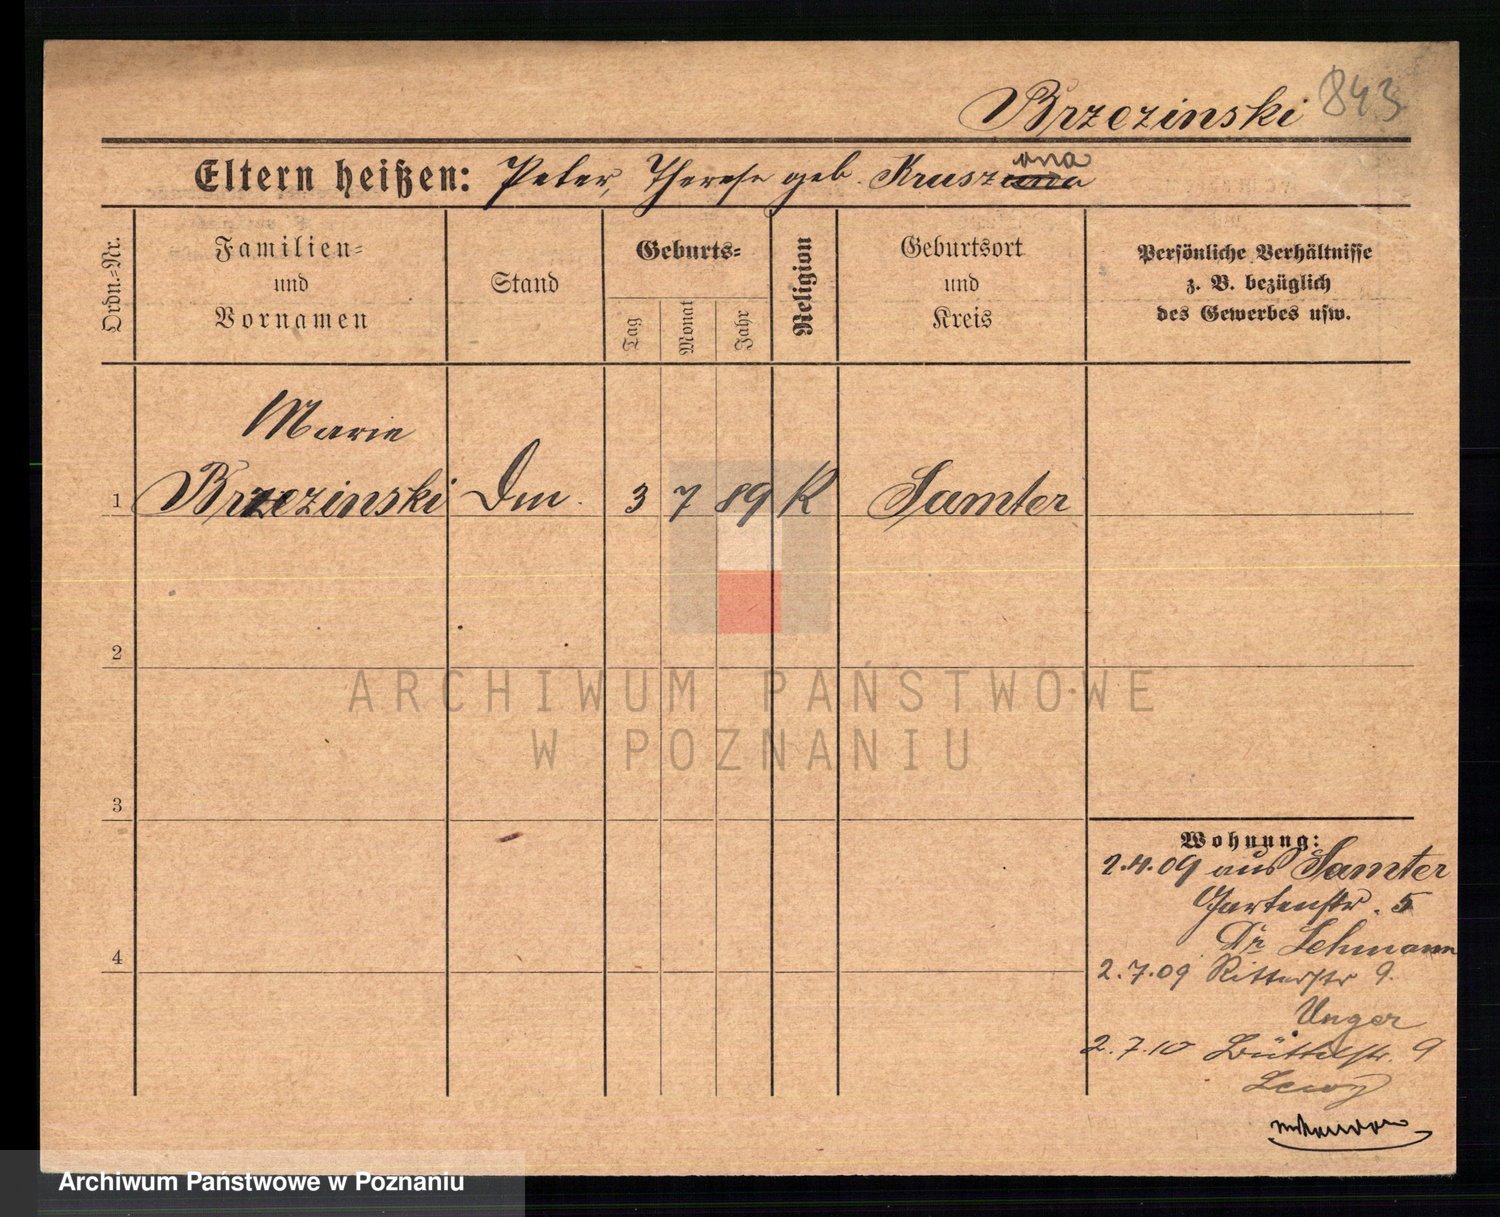 Brzezinski 843
Eltern heißen: Peter, Therese geb. Kruszona
Ordn.-Nr.
Familien- und Vornamen
Stand
Geburts-
Tag
Monat
Jahr
Religion
Geburtsort und Kreis
Persönliche Verhältnisse
z. B. bezüglich
des Gewerbes usw.
Marie
1 Brzezinski 3 7 89 K Samter
2
3
4
Wohnung:
2.4.09 aus Samter
Gartenstr. 5
Dr Lehmann
2.7.09 Ritterstr 9.
Unger
2.7.10 Büttelstr. 9
Lewy
ARCHIWUM PAŃSTWOWE
W POZNANIU
Archiwum Państwowe w Poznaniu